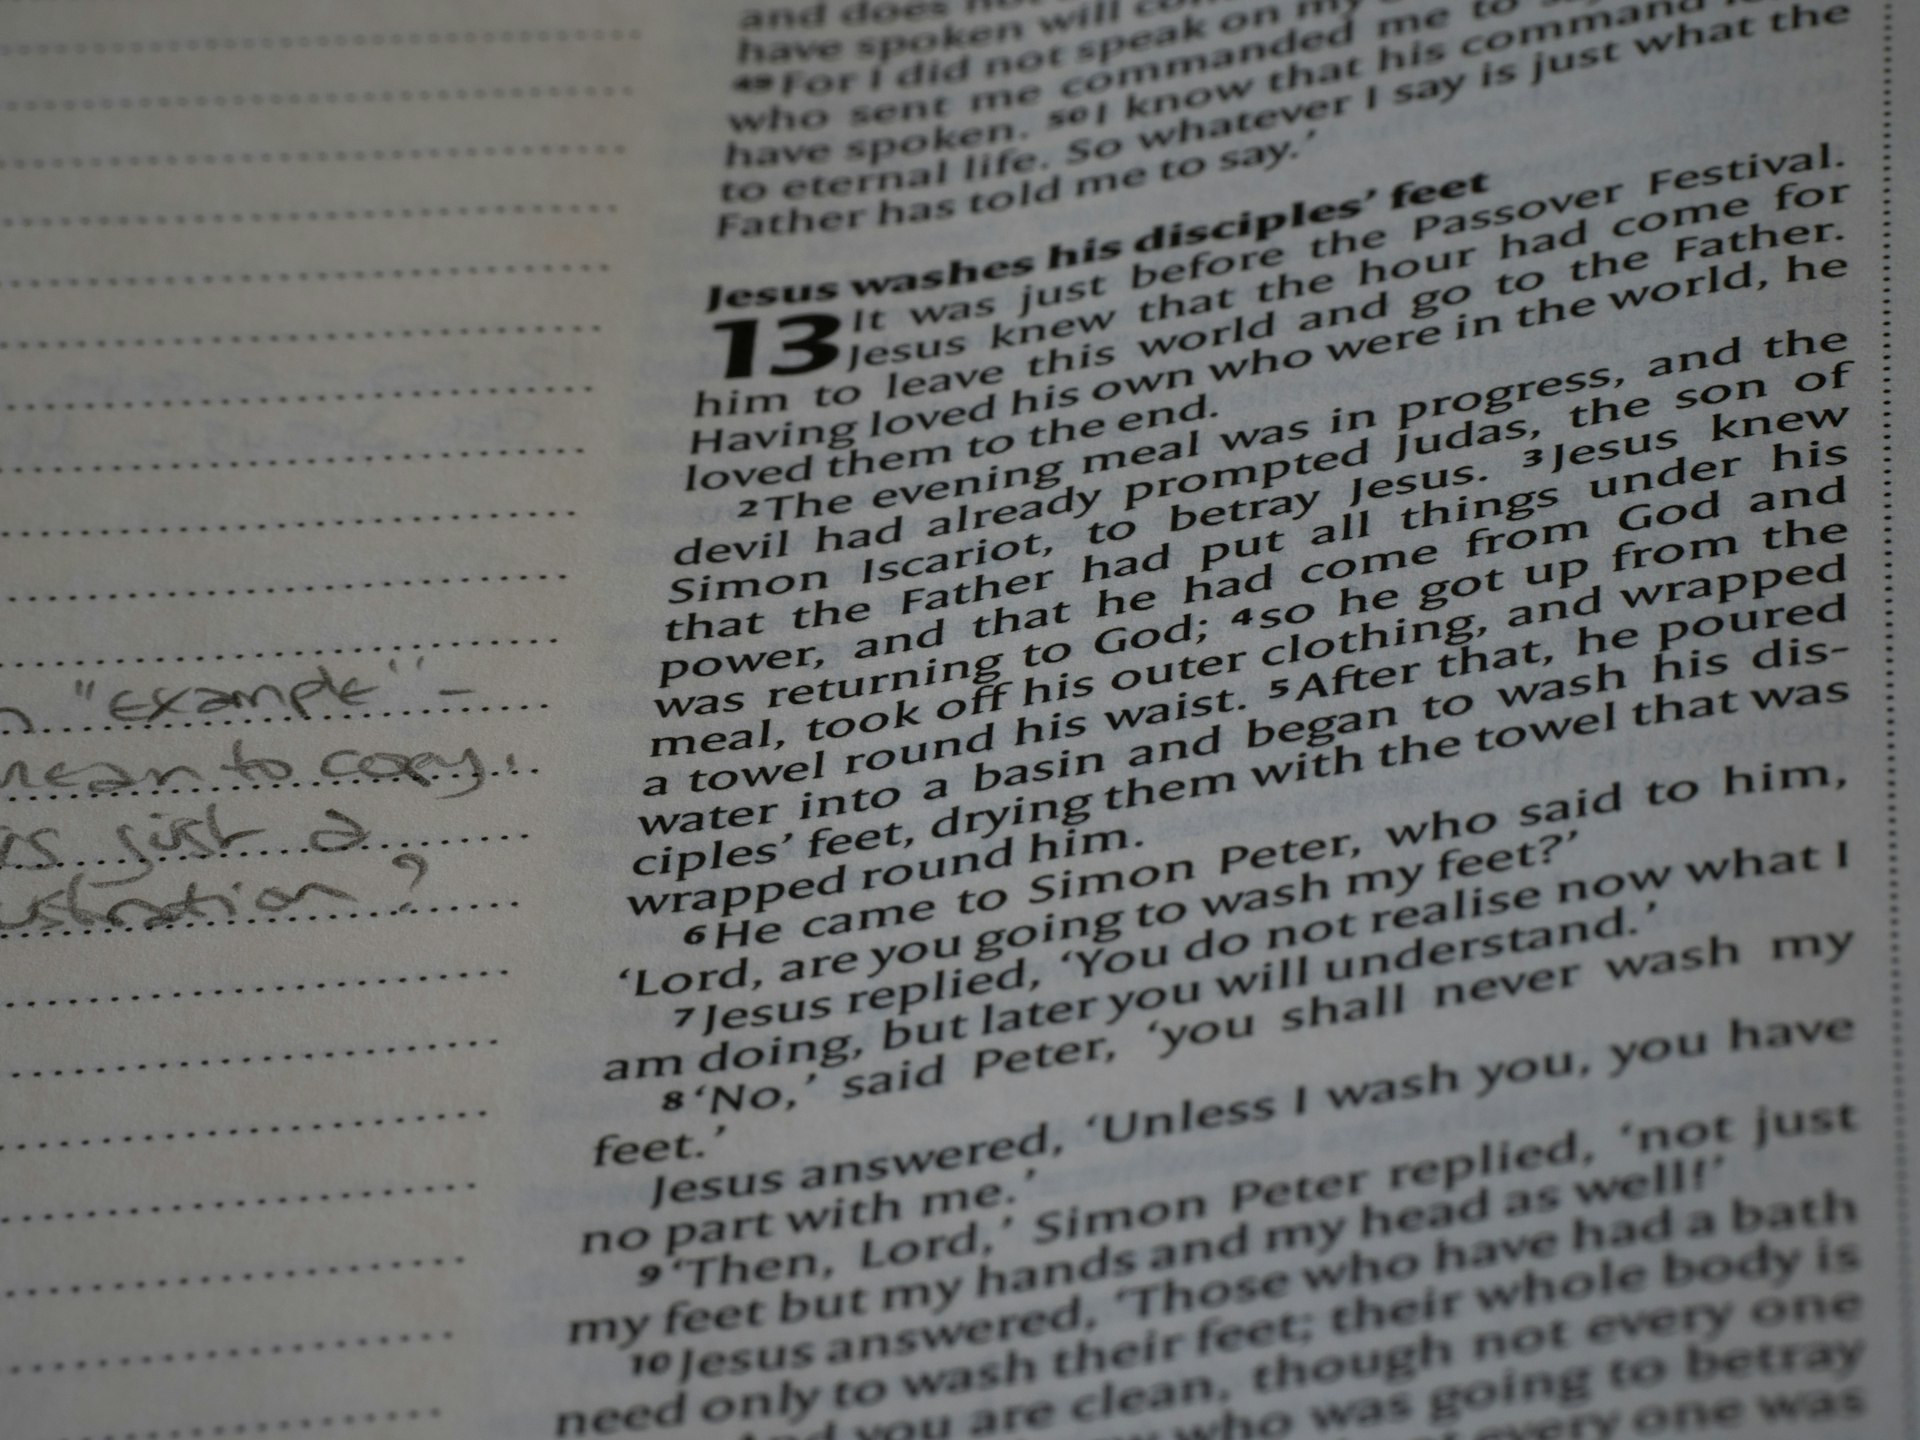 "example" -
mean to copy.
just a
?
and does not
have spoken will
49 For I did not speak on my
who sent me commanded me to
have spoken. 50 I know that his command
to eternal life. So whatever I say is just what the
Father has told me to say.’
Jesus washes his disciples’ feet
13 It was just before the Passover Festival.
Jesus knew that the hour had come for
him to leave this world and go to the Father.
Having loved his own who were in the world, he
loved them to the end.
2 The evening meal was in progress, and the
devil had already prompted Judas, the son of
Simon Iscariot, to betray Jesus. 3 Jesus knew
that the Father had put all things under his
power, and that he had come from God and
was returning to God; 4 so he got up from the
meal, took off his outer clothing, and wrapped
a towel round his waist. 5 After that, he poured
water into a basin and began to wash his dis-
ciples’ feet, drying them with the towel that was
wrapped round him.
6 He came to Simon Peter, who said to him,
‘Lord, are you going to wash my feet?’
7 Jesus replied, ‘You do not realise now what I
am doing, but later you will understand.’
8 ‘No,’ said Peter, ‘you shall never wash my
feet.’
Jesus answered, ‘Unless I wash you, you have
no part with me.’
9 ‘Then, Lord,’ Simon Peter replied, ‘not just
my feet but my hands and my head as well!’
10 Jesus answered, ‘Those who have had a bath
need only to wash their feet; their whole body is
And you are clean, though not every one
who was going to betray
every one was